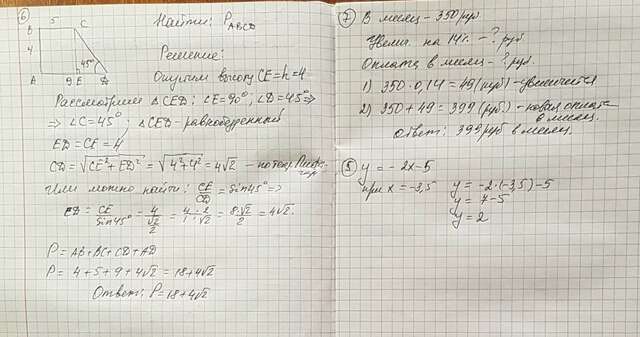 6
B 5 C
4
45°
A 9 E D
Найти: P ABCD
Решение:
Опустим высоту CE = h = 4
Рассмотрим △CED: ∠E = 90°; ∠D = 45° ⇒
⇒ ∠C = 45°; △CED - равнобедренный
ED = CE = 4
CD = √CE² + ED² = √4² + 4² = 4√2 - по теор. Пифагора
Или можно найти: CE/CD = sin 45° ⇒
CE/sin 45° = 4/(√2/2) = 4·2/1·√2 = 8·√2/2 = 4√2.
P = AB + BC + CD + AD
P = 4 + 5 + 9 + 4√2 = 18 + 4√2
Ответ: P = 18 + 4√2
7 В месяц - 350 руб
Увелич. на 14% - ? руб.
Оплата в месяц - ? руб.
1) 350 · 0,14 = 49 (руб) - увеличится
2) 350 + 49 = 399 (руб.) - новая оплата
в месяц.
Ответ: 399 руб в месяц.
5 y = -2x - 5
при x = -3,5 y = -2·(-3,5) - 5
y = 7 - 5
y = 2